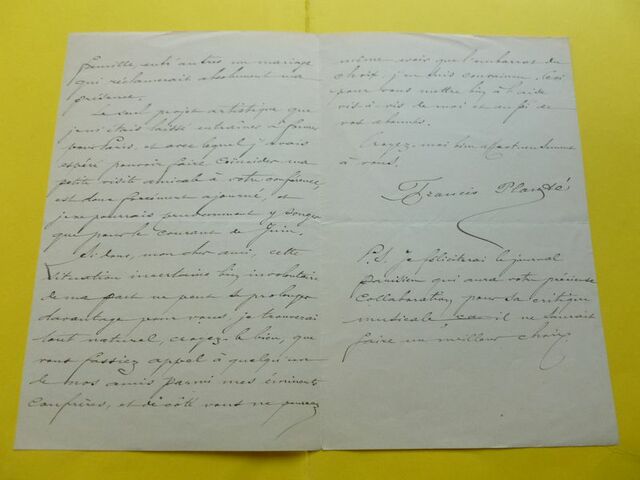 famille, entr'autres un mariage
qui réclamerait absolument ma
présence.
Le seul projet artistique que
je m'étais laissé entraîner à former
pour Paris, et avec lequel j'avais
espéré pouvoir faire coïncider ma
petite visite amicale à votre conférence,
est donc forcément ajourné, et
je ne pourrais prudemment y songer
que pour le courant de Juin.
Si donc, mon cher ami, cette
situation incertaine bien involontaire
de ma part ne peut se prolonger
davantage pour vous, je trouverai
tout naturel, croyez-le bien, que
vous fassiez appel à quelqu'un
de nos amis parmi mes éminents
confrères, et de côté vous ne pouvez
même avoir que l'embarras du
choix, j'en suis convaincu. Ceci
pour vous mettre bien à l'aise
vis à vis de moi et au fi de
vos abonnés.
Croyez-moi bien affectueusement
à vous.
Francis Planté
P.S. Je féliciterai le journal
Parisien qui aura votre précieuse
collaboration pour sa critique
musicale car il ne saurait
faire un meilleur choix